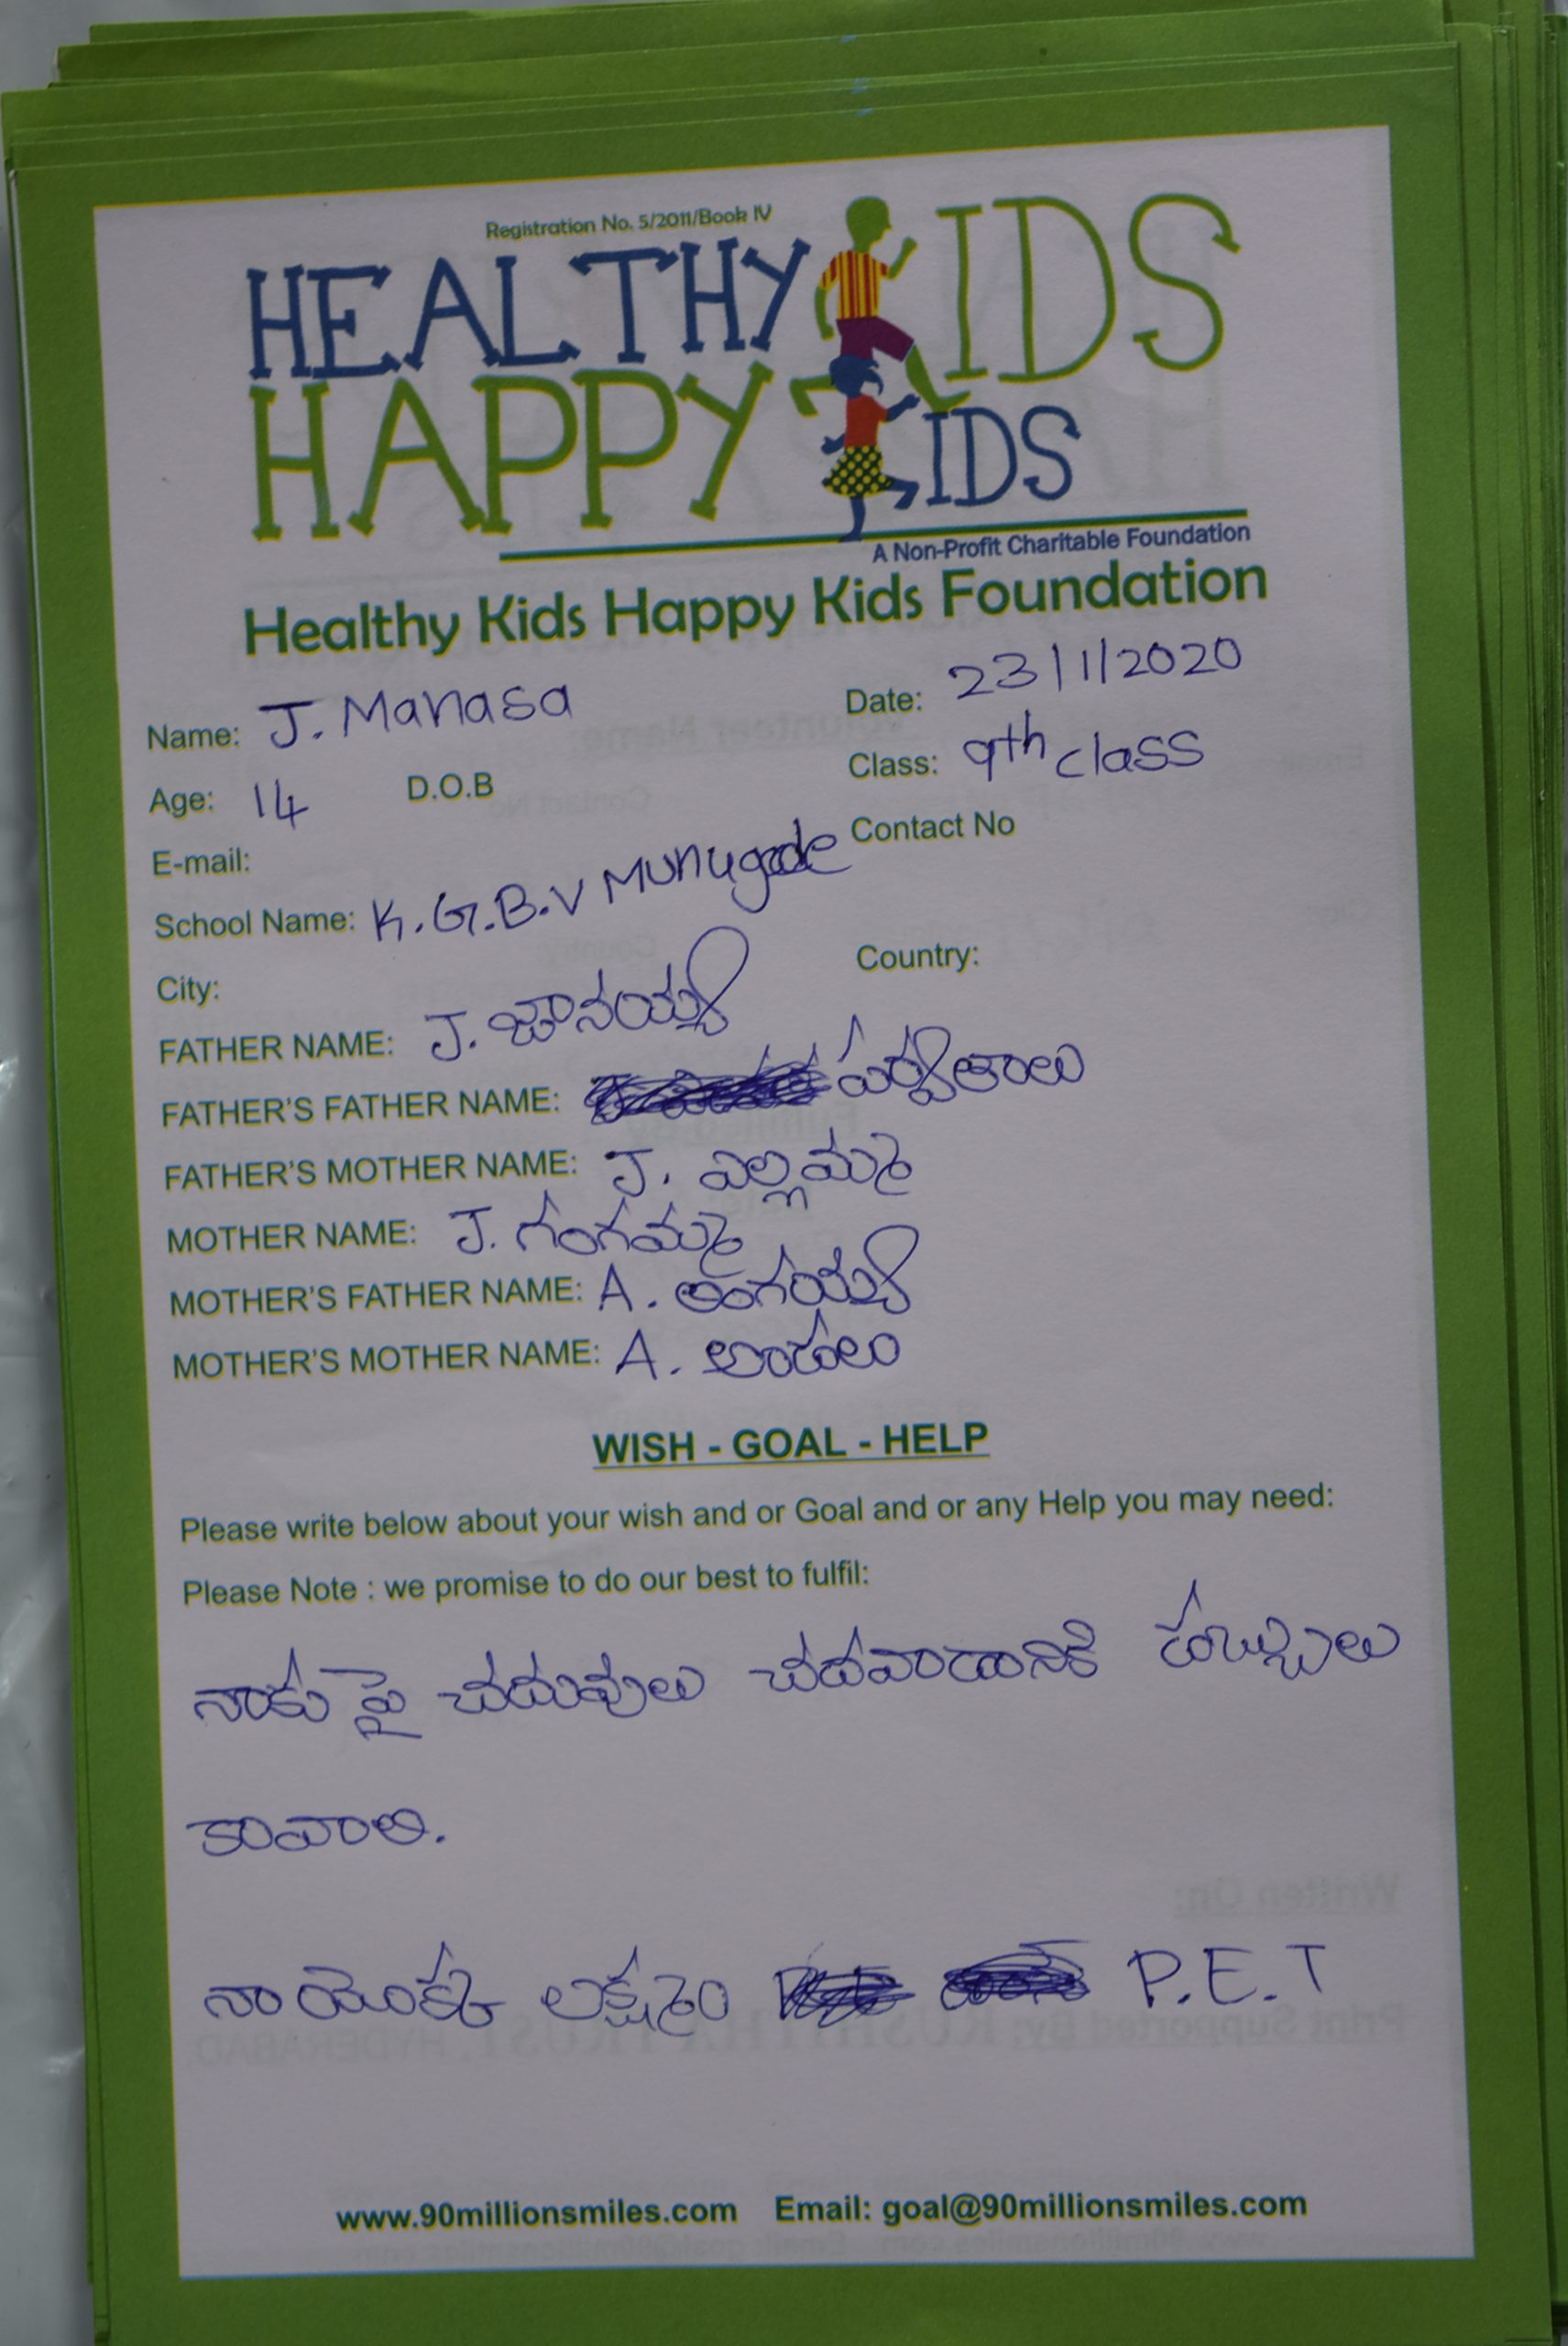 Registration No. 5/2011/Book IV
HEALTHY KIDS
HAPPY KIDS
A Non-Profit Charitable Foundation
Healthy Kids Happy Kids Foundation
Name: J. Manasa Date: 23/1/2020
Age: 14 D.O.B Class: 9th class
E-mail: Contact No
School Name: K.G.B.V Munugode
City: Country:
FATHER NAME: J. జానయ్య
FATHER'S FATHER NAME: పర్వతాలు
FATHER'S MOTHER NAME: J. ఎల్లమ్మ
MOTHER NAME: J. గంగమ్మ
MOTHER'S FATHER NAME: A. లింగయ్య
MOTHER'S MOTHER NAME: A. అండలం
WISH - GOAL - HELP
Please write below about your wish and or Goal and or any Help you may need:
Please Note : we promise to do our best to fulfil:
నాకు పై చదువులు చదవాడానికి డబ్బులు
కావాలి.
నా యొక్క లక్ష్యం P.E.T
www.90millionsmiles.com Email: goal@90millionsmiles.com